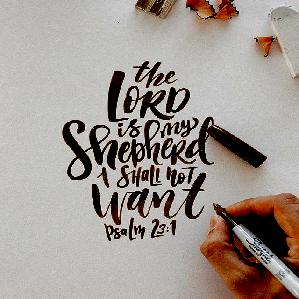 the
LORD
is my
Shepherd
I SHALL NOT
want
Psalm 23:1